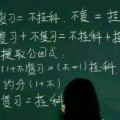 复习＝不挂科，不复＝挂
复习＋不复习＝不挂科＋挂
提取公因式：
(1＋不)复习＝(不＋1)挂科
约分(1＋不)
复习＝挂科